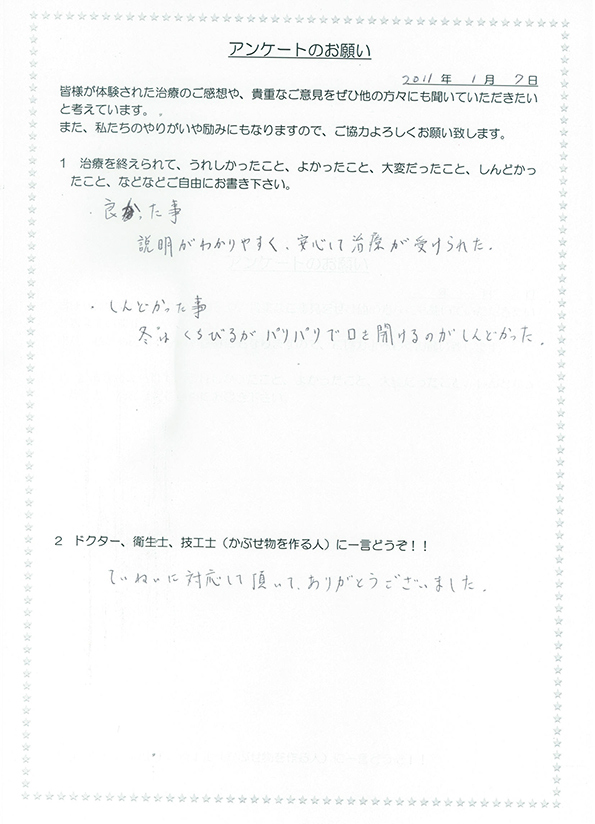 アンケートのお願い
2011 年 1 月 7 日
皆様が体験された治療のご感想や、貴重なご意見をぜひ他の方々にも聞いていただきたい
と考えています。
また、私たちのやりがいや励みにもなりますので、ご協力よろしくお願い致します。
1 治療を終えられて、うれしかったこと、よかったこと、大変だったこと、しんどかっ
たこと、などなどご自由にお書き下さい。
・良かった事
説明がわかりやすく、安心して治療が受けられた。
・しんどかった事
冬は くちびるが パリパリで口を開けるのがしんどかった。
2 ドクター、衛生士、技工士（かぶせ物を作る人）に一言どうぞ！！
ていねいに対応して頂いて、ありがとうございました。